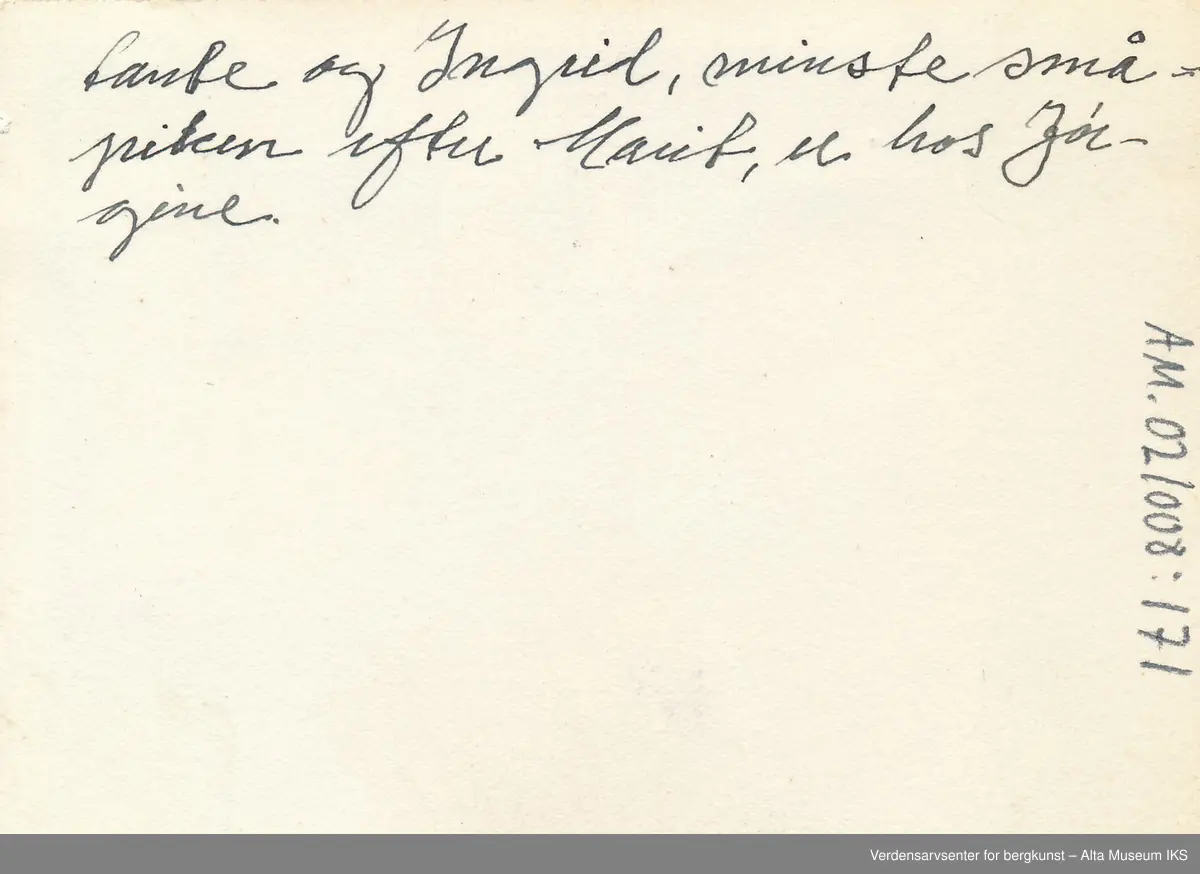 tante og Ingrid, minste små-
piken efter Marit, er hos Jør-
gine.
AM. 02/008:171
Verdensarvsenter for bergkunst – Alta Museum IKS